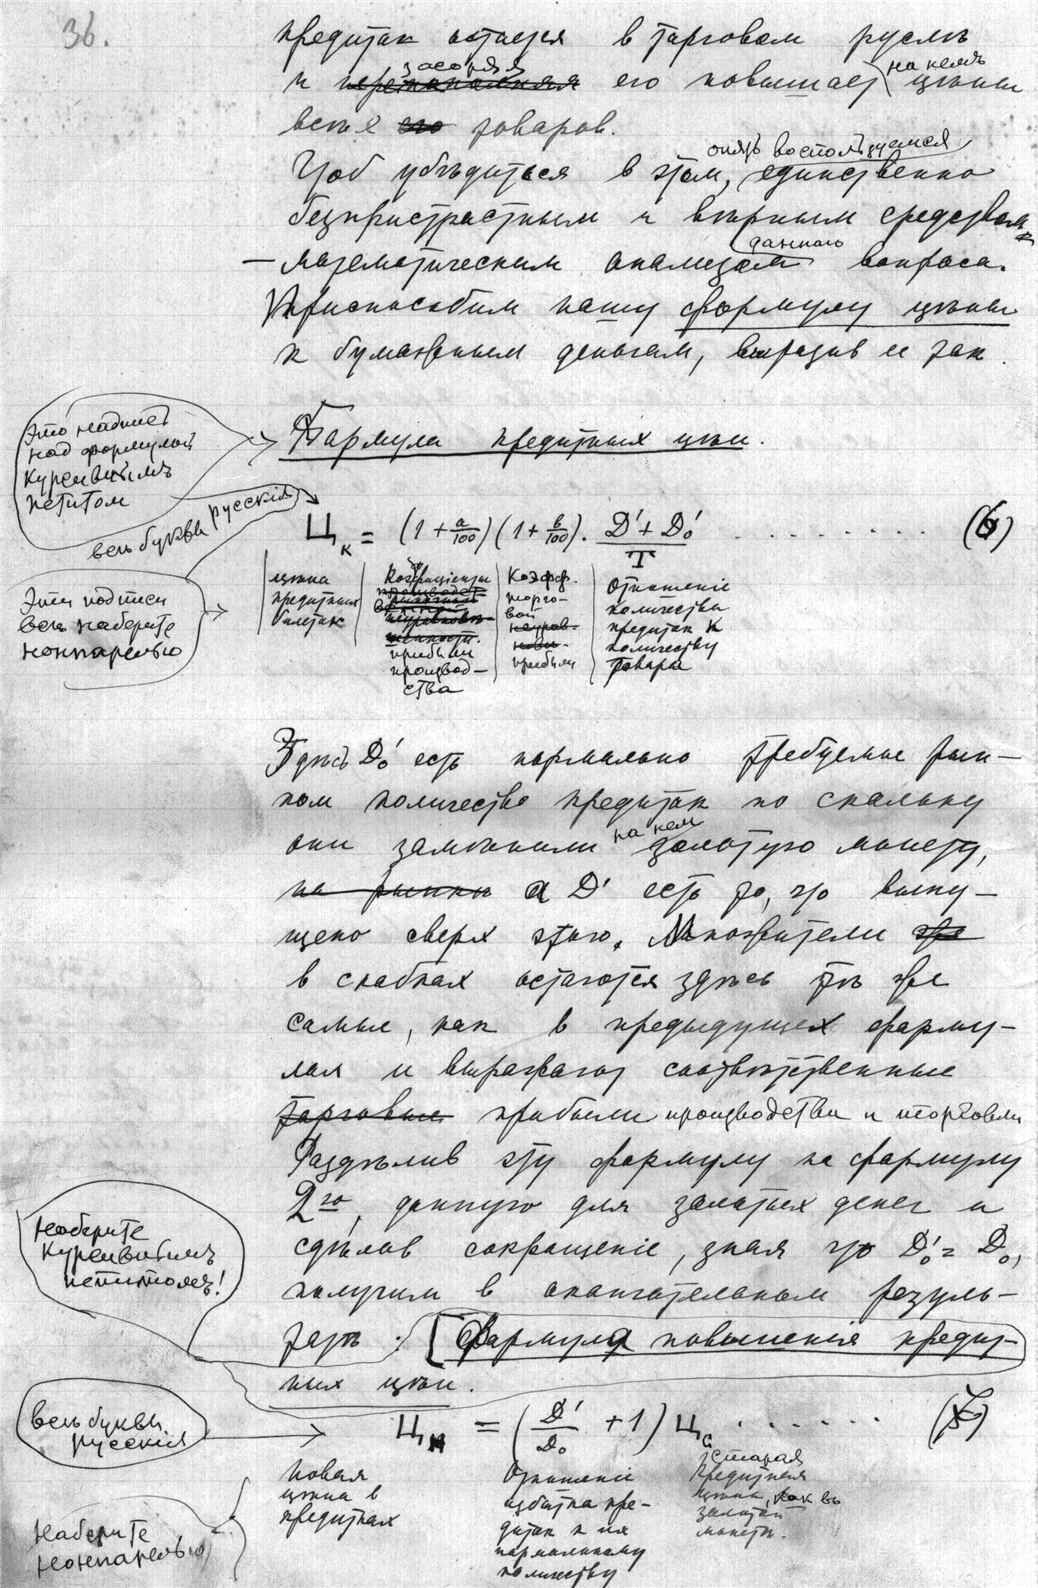 36.
кредиток остается в торговом руслѣ
и переполняя засоряя его повышает на немъ цѣны
всѣх его товаров.
Чтоб убѣдиться в этом, опять воспользуемся единственно
безпристрастным и вѣрным средством
— математическим анализом даннаго вопроса.
Приспособим нашу формулу цѣны
к бумажным деньгам, выразив ее так
Это надпись
над формулой
курсивнымъ
петитом
Формула кредитных цѣн.
всѣ буквы русскія
Ц к = (1 + a/100) (1 + b/100) . Д' + Д'₀ / Т . . . . . . . . (6)
Эти подписи
всѣ наберите
нонпарелью
цѣна
кредитных
билетах
Коэфициенты
прибыли
производ-
ства
Коэфф.
торго-
вой
прибыли
Отношеніе
количества
кредиток к
количеству
товара
Здѣсь Д'₀ есть нормально требуемые рын-
ком количество кредиток по скольку
они замѣнили на нем золотую монету,
на рынкѣ а Д' есть то, что выпу-
щено сверх этого. Множители
в скобках остаются здѣсь тѣ же
самые, как в предыдущих форму-
лах и выражают соотвѣтственные
торговые прибыли производства и торговли
Раздѣлив эту формулу на формулу
2го, данную для золотых денег и
сдѣлав сокращеніе, зная что Д'₀ = Д₀,
получим в окончательном резуль-
татѣ : Формула повышенія кредит-
ных цѣн.
Наберите
курсивнымъ
петитомъ!
всѣ буквы
русскія
Ц н = ( Д' / Д₀ + 1 ) Ц с . . . . . . (7)
Наберите
нонпарелью
новая
цѣна в
кредитках
Отношеніе
избытка кре-
диток к их
нормальному
количеству
старая
кредитная
цѣна, как въ
золотой
монетѣ.